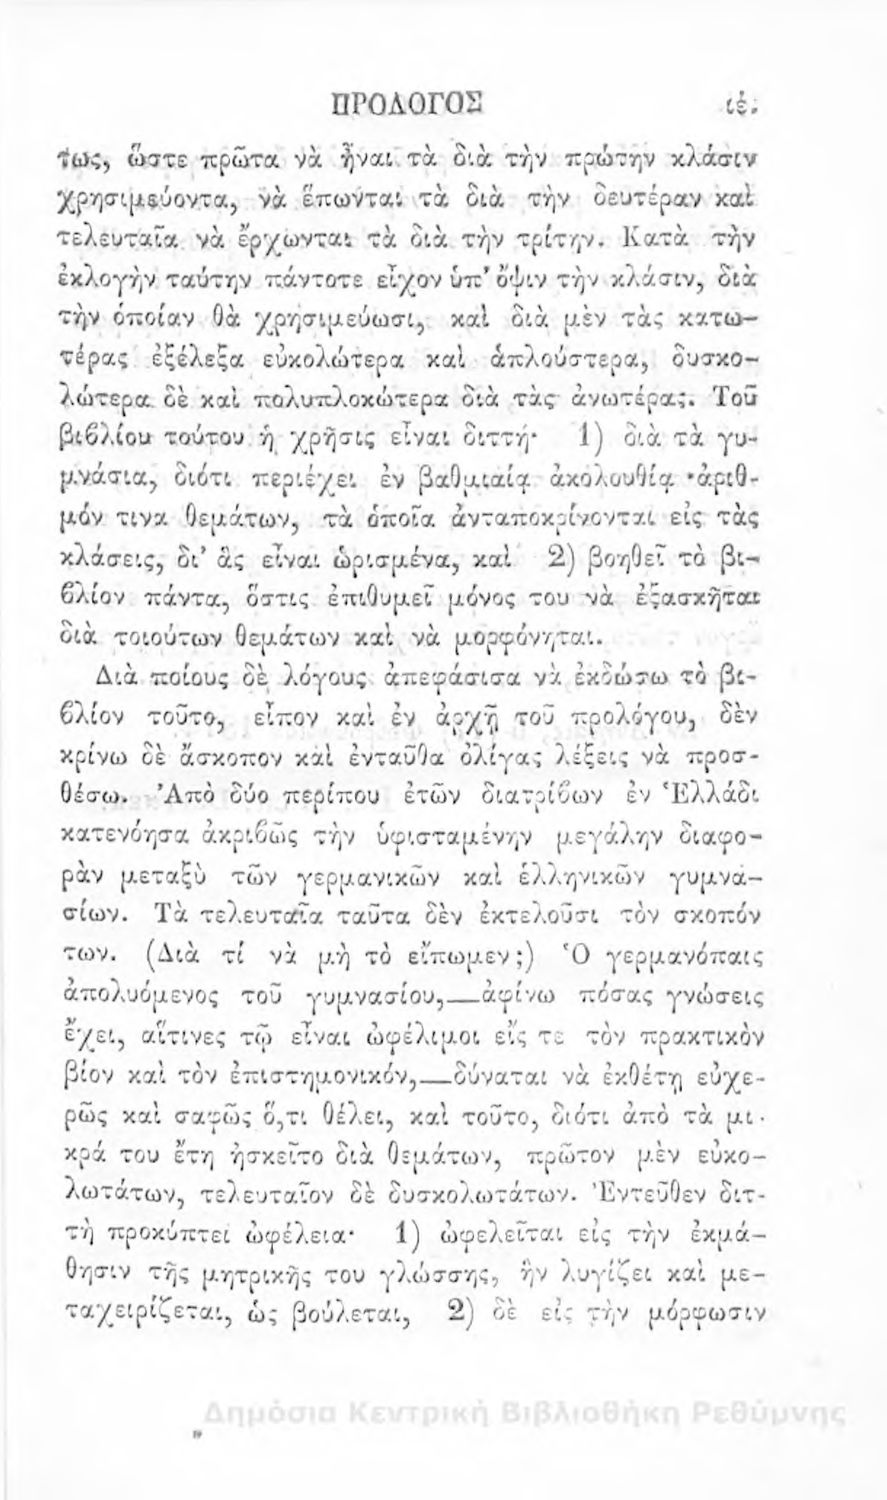 ΠΡΟΛΟΓΟΣ ιέ.
τως, ὥστε πρῶτα νὰ ᾖναι τὰ διὰ τὴν πρώτην κλάσιν
χρησιμεύοντα, νὰ ἕπωνται τὰ διὰ τὴν δευτέραν καὶ
τελευταῖα νὰ ἔρχωνται τὰ διὰ τὴν τρίτην. Κατὰ τὴν
ἐκλογὴν ταύτην πάντοτε εἶχον ὑπ' ὄψιν τὴν κλάσιν, διὰ
τὴν ὁποίαν θὰ χρησιμεύωσι, καὶ διὰ μὲν τὰς κατω-
τέρας ἐξέλεξα εὐκολώτερα καὶ ἁπλούστερα, δυσκο-
λώτερα δὲ καὶ πολυπλοκώτερα διὰ τὰς ἀνωτέρας. Τοῦ
βιϐλίου τούτου ἡ χρῆσις εἶναι διττή· 1) διὰ τὰ γυ-
μνάσια, διότι περιέχει ἐν βαθμιαίᾳ ἀκολουθίᾳ ἀριθ-
μόν τινα θεμάτων, τὰ ὁποῖα ἀνταποκρίνονται εἰς τὰς
κλάσεις, δι' ἃς εἶναι ὡρισμένα, καὶ 2) βοηθεῖ τὸ βι-
ϐλίον πάντα, ὅστις ἐπιθυμεῖ μόνος του νὰ ἐξασκῆται
διὰ τοιούτων θεμάτων καὶ νὰ μορφόνηται.
Διὰ ποίους δὲ λόγους ἀπεφάσισα νὰ ἐκδώσω τὸ βι-
ϐλίον τοῦτο, εἶπον καὶ ἐν ἀρχῇ τοῦ προλόγου, δὲν
κρίνω δὲ ἄσκοπον καὶ ἐνταῦθα ὀλίγας λέξεις νὰ προσ-
θέσω. Ἀπὸ δύο περίπου ἐτῶν διατρίϐων ἐν Ἑλλάδι
κατενόησα ἀκριϐῶς τὴν ὑφισταμένην μεγάλην διαφο-
ρὰν μεταξὺ τῶν γερμανικῶν καὶ ἑλληνικῶν γυμνα-
σίων. Τὰ τελευταῖα ταῦτα δὲν ἐκτελοῦσι τὸν σκοπόν
των. (Διὰ τί νὰ μὴ τὸ εἴπωμεν;) Ὁ γερμανόπαις
ἀπολυόμενος τοῦ γυμνασίου,—ἀφίνω πόσας γνώσεις
ἔχει, αἵτινες τῷ εἶναι ὠφέλιμοι εἴς τε τὸν πρακτικὸν
βίον καὶ τὸν ἐπιστημονικόν,—δύναται νὰ ἐκθέτῃ εὐχε-
ρῶς καὶ σαφῶς ὅ,τι θέλει, καὶ τοῦτο, διότι ἀπὸ τὰ μι-
κρά του ἔτη ἠσκεῖτο διὰ θεμάτων, πρῶτον μὲν εὐκο-
λωτάτων, τελευταῖον δὲ δυσκολωτάτων. Ἐντεῦθεν διτ-
τὴ προκύπτει ὠφέλεια· 1) ὠφελεῖται εἰς τὴν ἐκμά-
θησιν τῆς μητρικῆς του γλώσσης, ἣν λυγίζει καὶ με-
ταχειρίζεται, ὡς βούλεται, 2) δὲ εἰς τὴν μόρφωσιν
Δημόσια Κεντρική Βιβλιοθήκη Ρεθύμνης